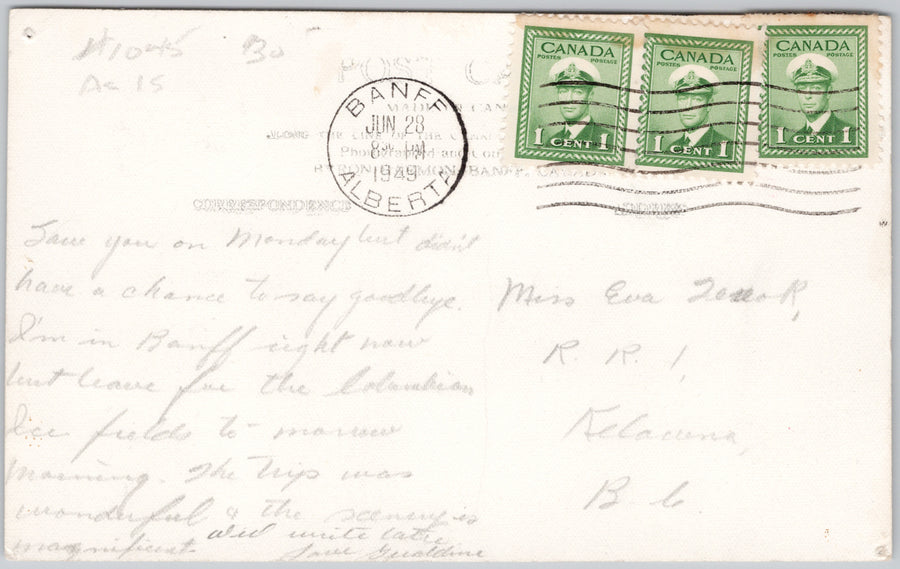 #1045 30
POST CA
CANADA
POSTES POSTAGE
1 CENT 1
CANADA
POSTES POSTAGE
1 CENT 1
CANADA
POSTES POSTAGE
1 CENT 1
BANFF
JUN 28
8 PM
1949
ALBERTA
MADE CAN
ALONG THE LINE OF THE CANA
Photographed and Co
BYRON HARMON, BANFF, CANADA
CORRESPONDENCE
ADDRESS
Saw you on Monday but didn't
have a chance to say goodbye.
I'm in Banff right now
but leave for the Columbian
Ice fields to morrow
morning. The trip was
wonderful & the scenery is
magnificent. will write later
Love Geraldine
Miss Eva
R. R. 1,
Kelowna,
B. C.